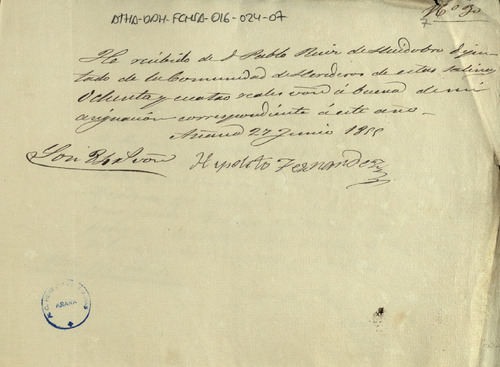 ATHA-DAH-FCMSA-016-024-07
Nº 30
He recibido de D. Pablo Ruiz de Huidobro Diputado de la Comunidad de Herederos de estas salinas
Ochenta y cuatro reales vón á buena de mi
asignacion correspondiente á este año
Añana 27 Junio 18
Hypolito Fernandez
AÑANA